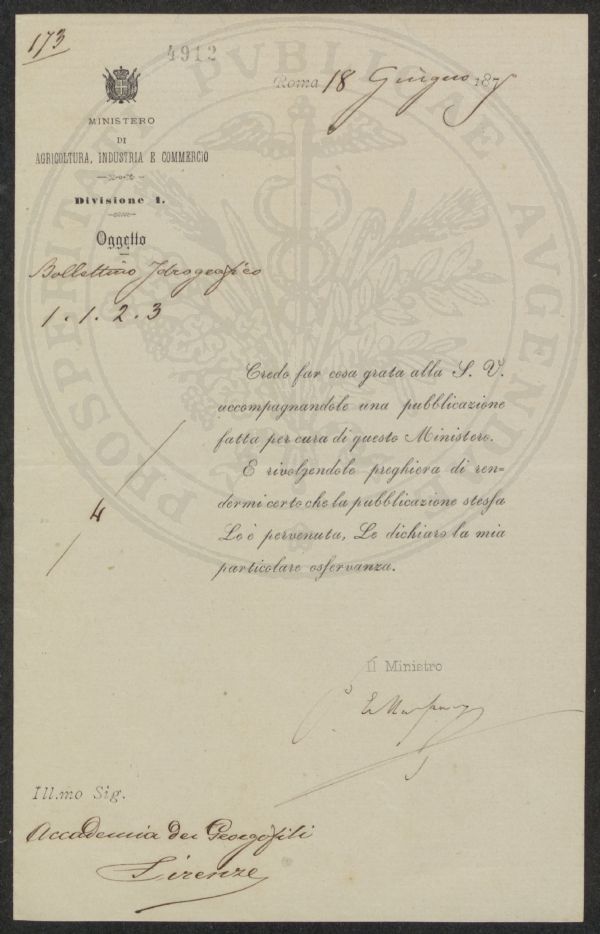 173
4912
Roma 18 Giugno 187
MINISTERO
DI
AGRICOLTURA, INDUSTRIA E COMMERCIO
Divisione 1.
Oggetto
Bollettino Idrografico
1.1.2.3
Credo far cosa grata alla S. V.
accompagnandole una pubblicazione
fatta per cura di questo Ministero.
E rivolgendole preghiera di ren-
dermi certo che la pubblicazione stessa
Le è pervenuta, Le dichiaro la mia
particolare osservanza.
4
Il Ministro
Ill.mo Sig.
Accademia dei Georgofili
Firenze
PROSPERITATI PVBLICAE AVGENDAE